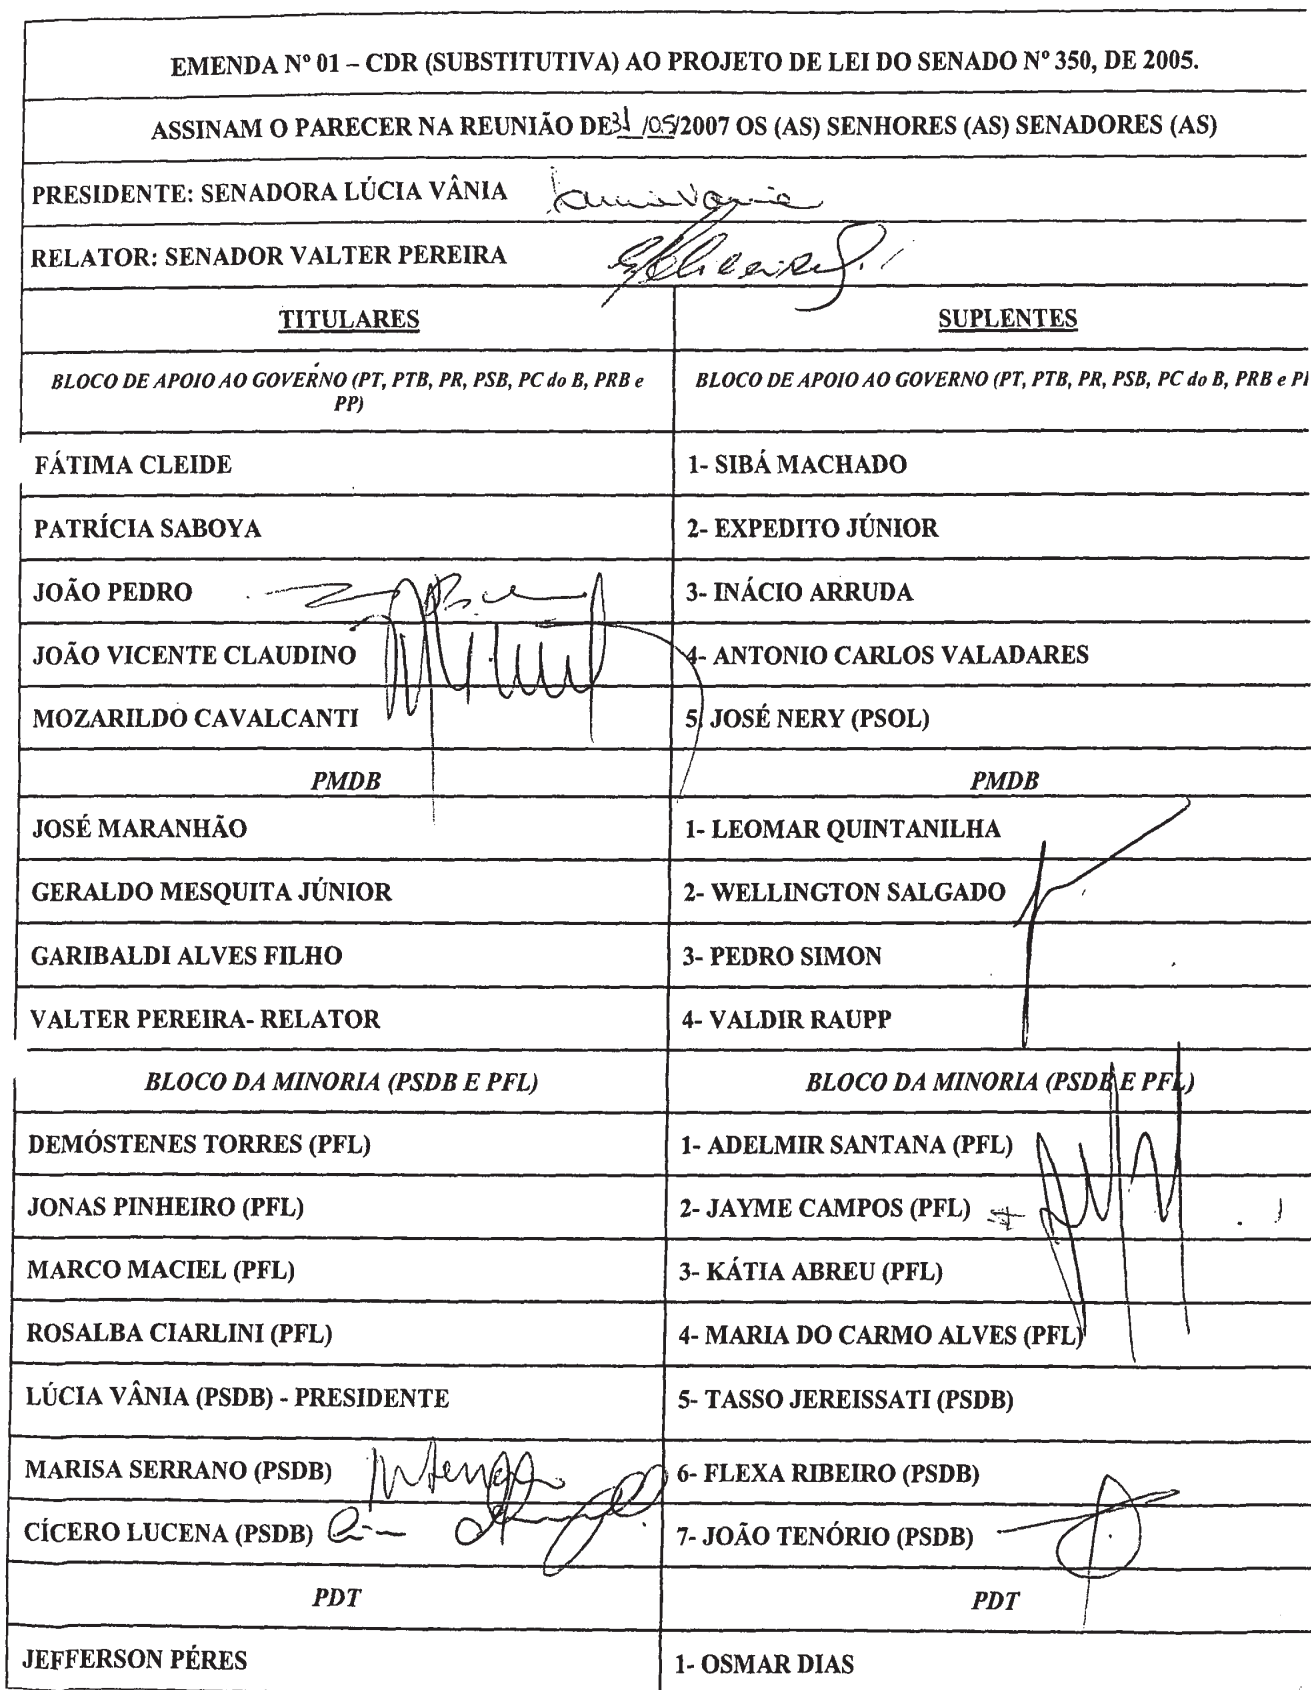 EMENDA Nº 01 – CDR (SUBSTITUTIVA) AO PROJETO DE LEI DO SENADO Nº 350, DE 2005.
ASSINAM O PARECER NA REUNIÃO DE 31/05/2007 OS (AS) SENHORES (AS) SENADORES (AS)
PRESIDENTE: SENADORA LÚCIA VÂNIA
RELATOR: SENADOR VALTER PEREIRA
TITULARES SUPLENTES
BLOCO DE APOIO AO GOVERNO (PT, PTB, PR, PSB, PC do B, PRB e BLOCO DE APOIO AO GOVERNO (PT, PTB, PR, PSB, PC do B, PRB e
PP)
FÁTIMA CLEIDE 1- SIBÁ MACHADO
PATRÍCIA SABOYA 2- EXPEDITO JÚNIOR
JOÃO PEDRO 3- INÁCIO ARRUDA
JOÃO VICENTE CLAUDINO 4- ANTONIO CARLOS VALADARES
MOZARILDO CAVALCANTI 5- JOSÉ NERY (PSOL)
PMDB PMDB
JOSÉ MARANHÃO 1- LEOMAR QUINTANILHA
GERALDO MESQUITA JÚNIOR 2- WELLINGTON SALGADO
GARIBALDI ALVES FILHO 3- PEDRO SIMON
VALTER PEREIRA- RELATOR 4- VALDIR RAUPP
BLOCO DA MINORIA (PSDB E PFL) BLOCO DA MINORIA (PSDB E PFL)
DEMÓSTENES TORRES (PFL) 1- ADELMIR SANTANA (PFL)
JONAS PINHEIRO (PFL) 2- JAYME CAMPOS (PFL)
MARCO MACIEL (PFL) 3- KÁTIA ABREU (PFL)
ROSALBA CIARLINI (PFL) 4- MARIA DO CARMO ALVES (PFL)
LÚCIA VÂNIA (PSDB) - PRESIDENTE 5- TASSO JEREISSATI (PSDB)
MARISA SERRANO (PSDB) 6- FLEXA RIBEIRO (PSDB)
CÍCERO LUCENA (PSDB) 7- JOÃO TENÓRIO (PSDB)
PDT PDT
JEFFERSON PÉRES 1- OSMAR DIAS